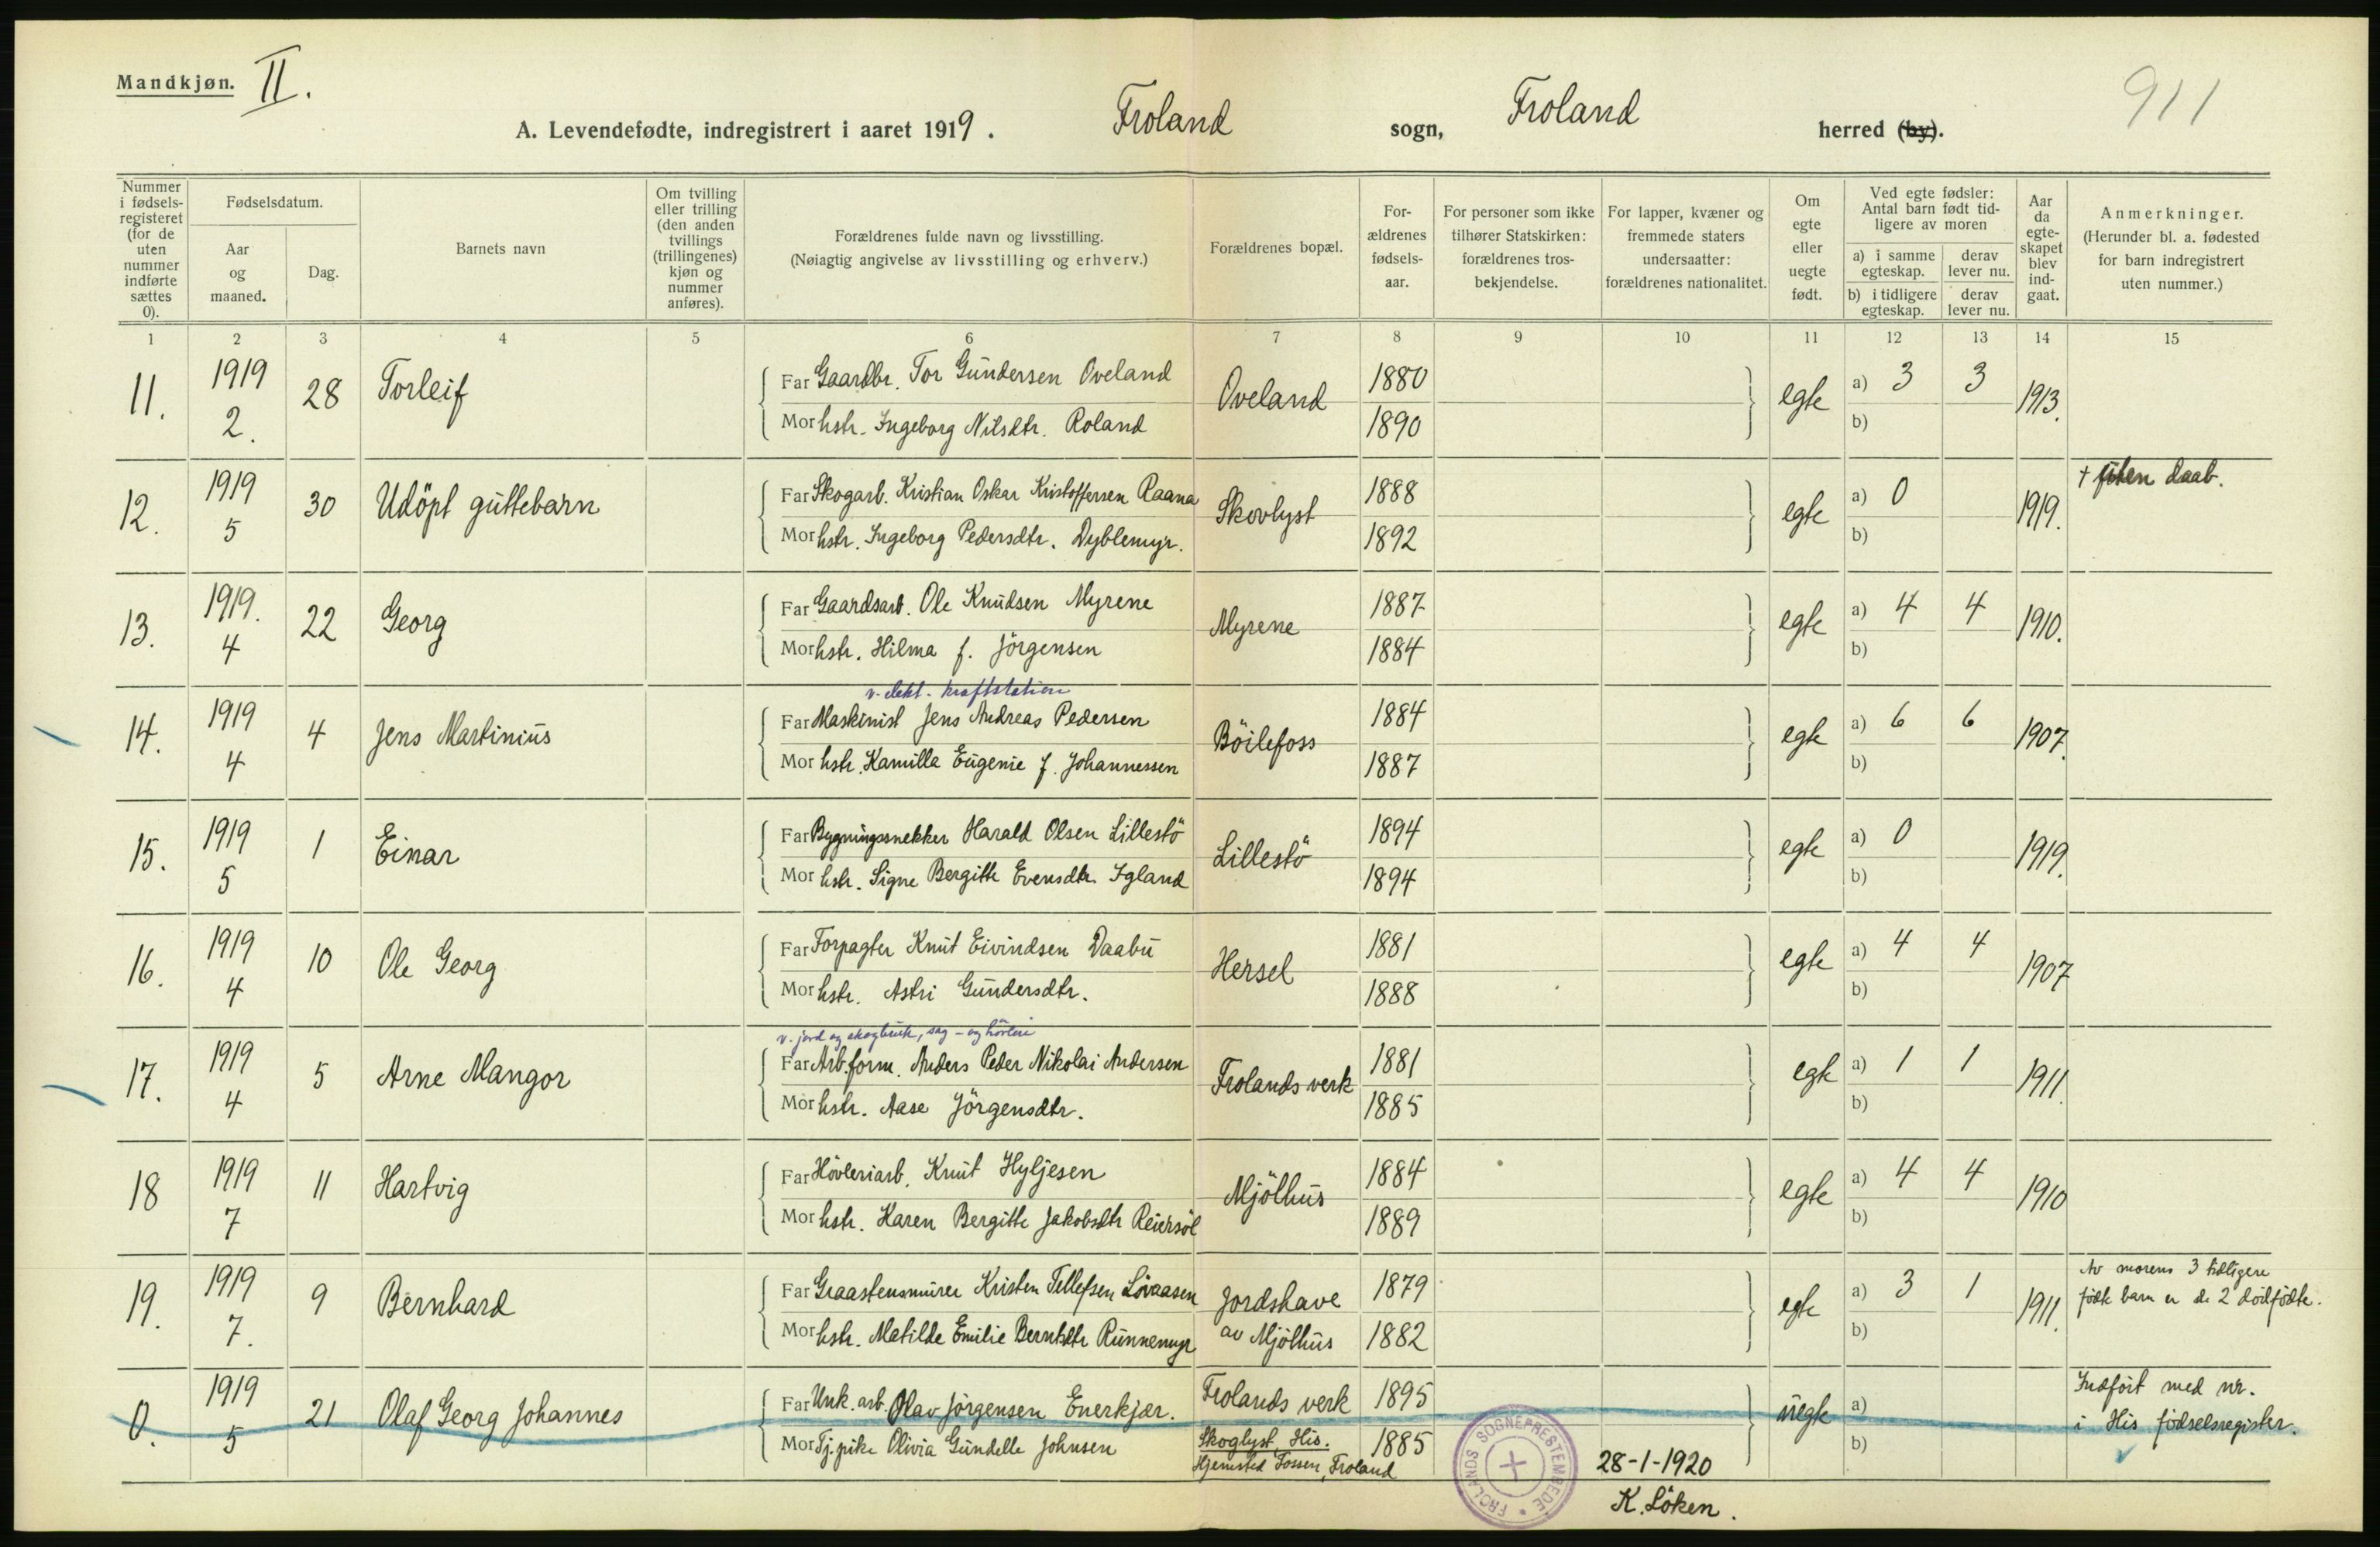 Mandkjøn. II.
911
A. Levendefødte, indregistrert i aaret 1919. Froland sogn, Froland herred (by).
Nummer i fødselsregisteret (for de uten nummer indførte sættes 0).
Fødselsdatum.
Aar og maaned.
Dag.
Barnets navn
Om tvilling eller trilling (den anden tvillings (trillingenes) kjøn og nummer anføres).
Forældrenes fulde navn og livsstilling.
(Nøiagtig angivelse av livsstilling og erhverv.)
Forældrenes bopæl.
Forældrenes fødselsaar.
For personer som ikke tilhører Statskirken: forældrenes trosbekjendelse.
For lapper, kvæner og fremmede staters undersaatter: forældrenes nationalitet.
Om egte eller uegte født.
Ved egte fødsler: Antal barn født tidligere av moren
a) i samme egteskap. derav lever nu.
b) i tidligere egteskap. derav lever nu.
Aar da egteskapet blev indgaat.
Anmerkninger.
(Herunder bl. a. fødested for barn indregistrert uten nummer.)
1 2 3 4 5 6 7 8 9 10 11 12 13 14 15
11. 1919 2. 28 Torleif
Far Gaardbr. Tor Gundersen Oveland Oveland 1880 egte a) 3 3 1913.
Mor hstr. Ingeborg Nilsdtr. Roland 1890 b)
12. 1919 5 30 Udöpt guttebarn
Far Skogarb. Kristian Oskar Kristoffersen Raana Skovlyst 1888 egte a) 0 1919. + uten daab.
Mor hstr. Ingeborg Pedersdtr. Dyblemyr. 1892 b)
13. 1919. 4 22 Georg
Far Gaardsarb. Ole Knudsen Myrene Myrene 1887 egte a) 4 4 1910.
Mor hstr. Hilma f. Jörgensen 1884 b)
v. elekt. kraftstation
14. 1919 4 4 Jens Martinius
Far Maskinist Jens Andreas Pedersen Böilefoss 1884 egte a) 6 6 1907.
Mor hstr. Kamilla Eugenie f. Johannessen 1887 b)
15. 1919 5 1 Einar
Far Bygningssnekker Harald Olsen Lillestö Lillestö 1894 egte a) 0 1919.
Mor hstr. Signe Bergitte Evensdtr. Igland 1894 b)
16. 1919 4 10 Ole Georg
Far Forpagter Knut Eivindsen Daabu Hersel 1881 egte a) 4 4 1907
Mor hstr. Astri Gundersdtr. 1888 b)
v. jord og skogbruk, sag- og hövleri
17. 1919 4 5 Arne Mangor
Far Arb.form. Anders Peder Nikolai Andersen Frolands verk 1881 egte a) 1 1 1911.
Mor hstr. Aase Jörgensdtr. 1885 b)
18 1919 7 11 Hartvig
Far Hövleriarb. Knut Hyljesen Mjölhus 1884 egte a) 4 4 1910
Mor hstr. Karen Bergitte Jakobsdtr Reiersöl 1889 b)
19. 1919 7. 9 Bernhard
Far Graastensmurer Kristen Tellefsen Lövaasen Jordshave 1879 egte a) 3 1 1911. Av morens 3 tidligere
Mor hstr. Matilde Emilie Berntsdtr Runnemyr av Mjölhus 1882 b) födte barn er de 2 dödfödte.
0. 1919 5 21 Olaf Georg Johannes
Far Unk. arb. Olav Jörgensen Enerkjær. Frolands verk 1895 uegte a) Indfört med nr.
Mor Tj.pike Olivia Gundelle Johnsen Skoglyst, His. 1885 b) i His födselsregister.
Hjemsted Fossen, Froland
FROLANDS SOGNEPRESTEMBEDE
28-1-1920
K. Löken.